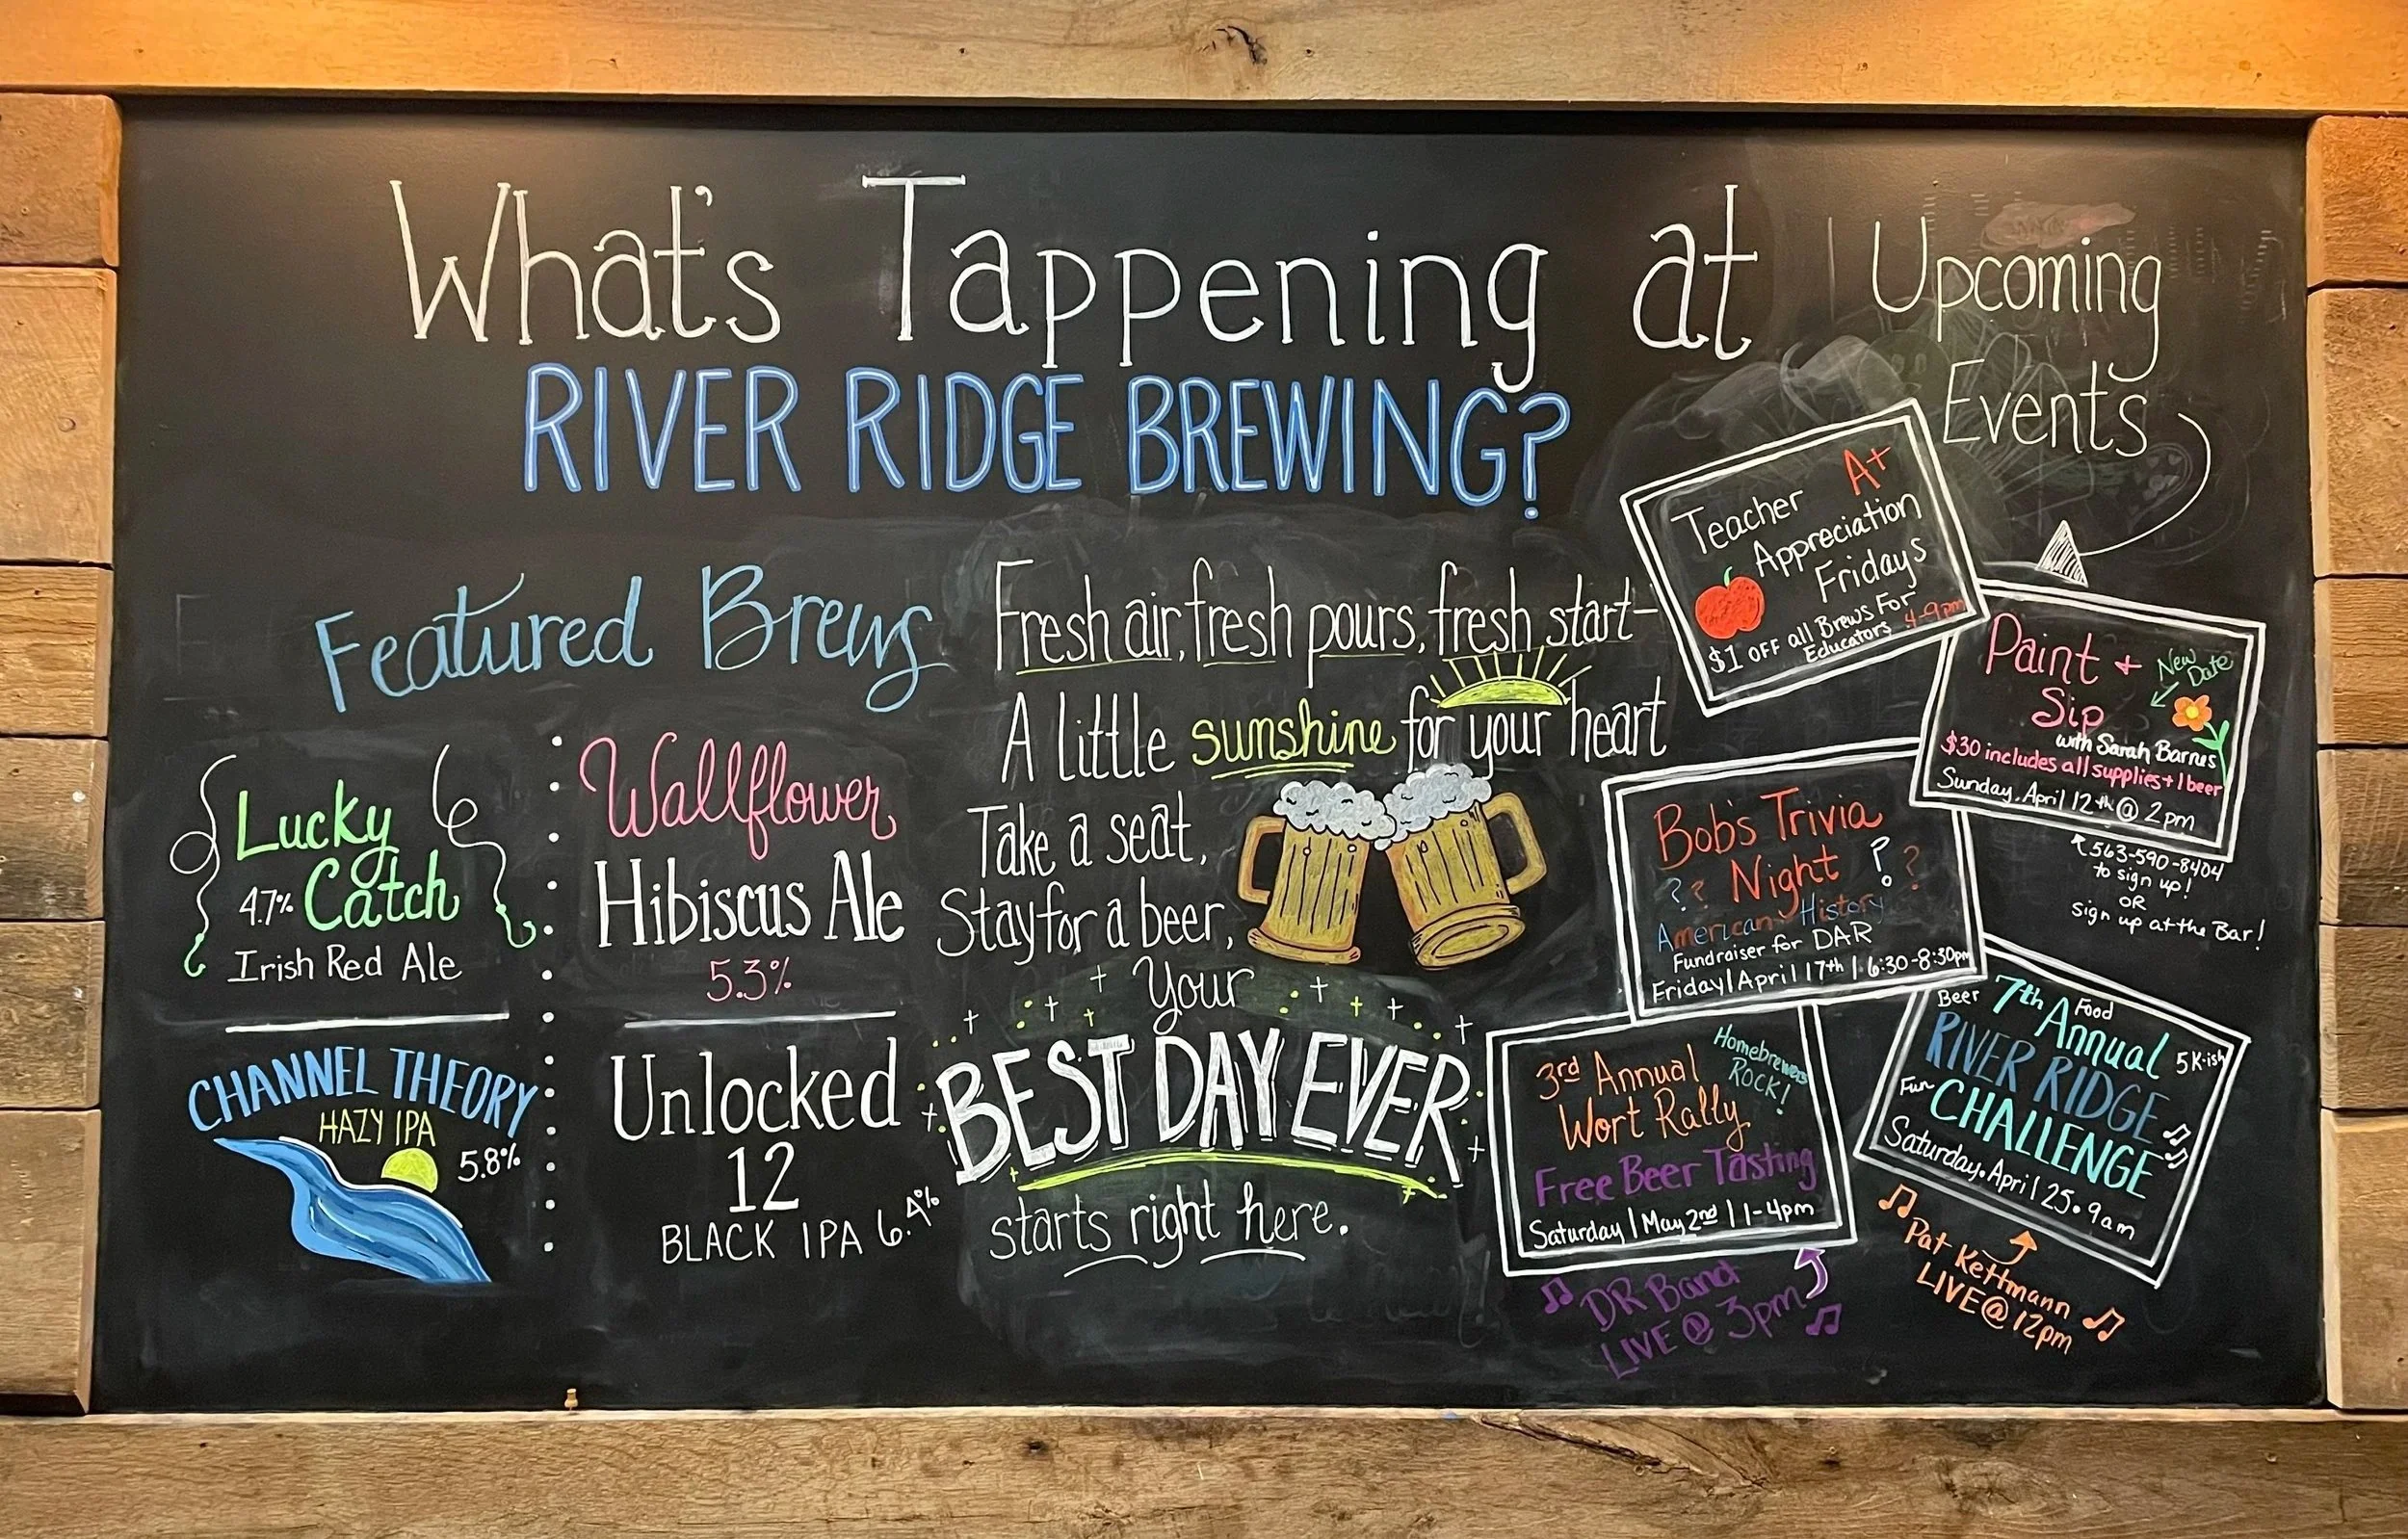 What's Tappening at
RIVER RIDGE BREWING?
Featured Brews
Lucky
4.7% Catch
Irish Red Ale
CHANNEL THEORY
HAZY IPA
5.8%
Wallflower
Hibiscus Ale
5.3%
Unlocked
12
BLACK IPA 6.4%
Fresh air, fresh pours, fresh start-
A little sunshine for your heart
Take a seat,
Stay for a beer,
Your
BEST DAY EVER
starts right here.
Upcoming
Events
A+
Teacher
Appreciation
Fridays
$1 OFF all Brews For
Educators 4-9pm
Paint +
Sip
New
Date
with Sarah Barnes
$30 includes all supplies + 1 beer
Sunday. April 12th @ 2pm
563-590-8404
to sign up!
OR
sign up at the Bar!
Bob's Trivia
Night ? ?
? ?
American History
Fundraiser for DAR
Friday | April 17th | 6:30-8:30pm
Beer 7th Food
Annual 5K-ish
RIVER RIDGE
Fun CHALLENGE
Saturday. April 25 • 9am
Pat Kettmann
LIVE @ 12pm
3rd Annual
Wort Rally
Homebrewers
ROCK!
Free Beer Tasting
Saturday | May 2nd | 1-4pm
DR Band
LIVE @ 3pm